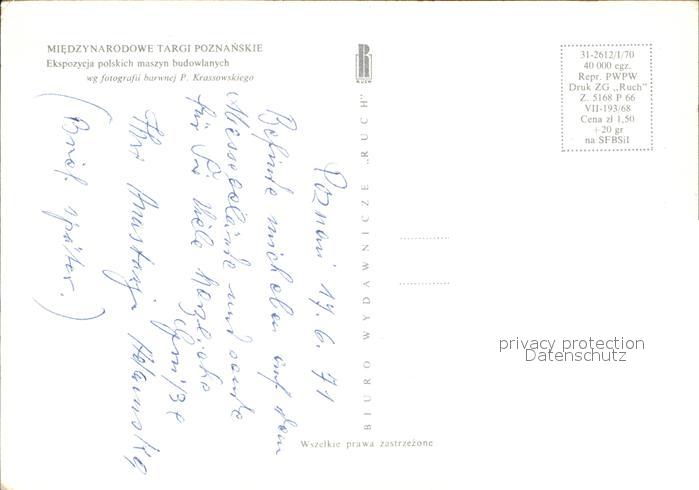 MIĘDZYNARODOWE TARGI POZNAŃSKIE
Ekspozycja polskich maszyn budowlanych
wg fotografii barwnej P. Krassowskiego
Poznań 17. 6. 71
Befinde mich eben auf dem
Messegelände und sende
für Sie viele herzliche
Grüße
Ihr
(Brief später.)
RUCH
BIURO WYDAWNICZE „RUCH"
31-2612/I/70
40 000 egz.
Repr. PWPW
Druk ZG „Ruch"
Z. 5168 P 66
VII-193/68
Cena zł 1,50
+20 gr
na SFBSiI
privacy protection
Datenschutz
Wszelkie prawa zastrzeżone